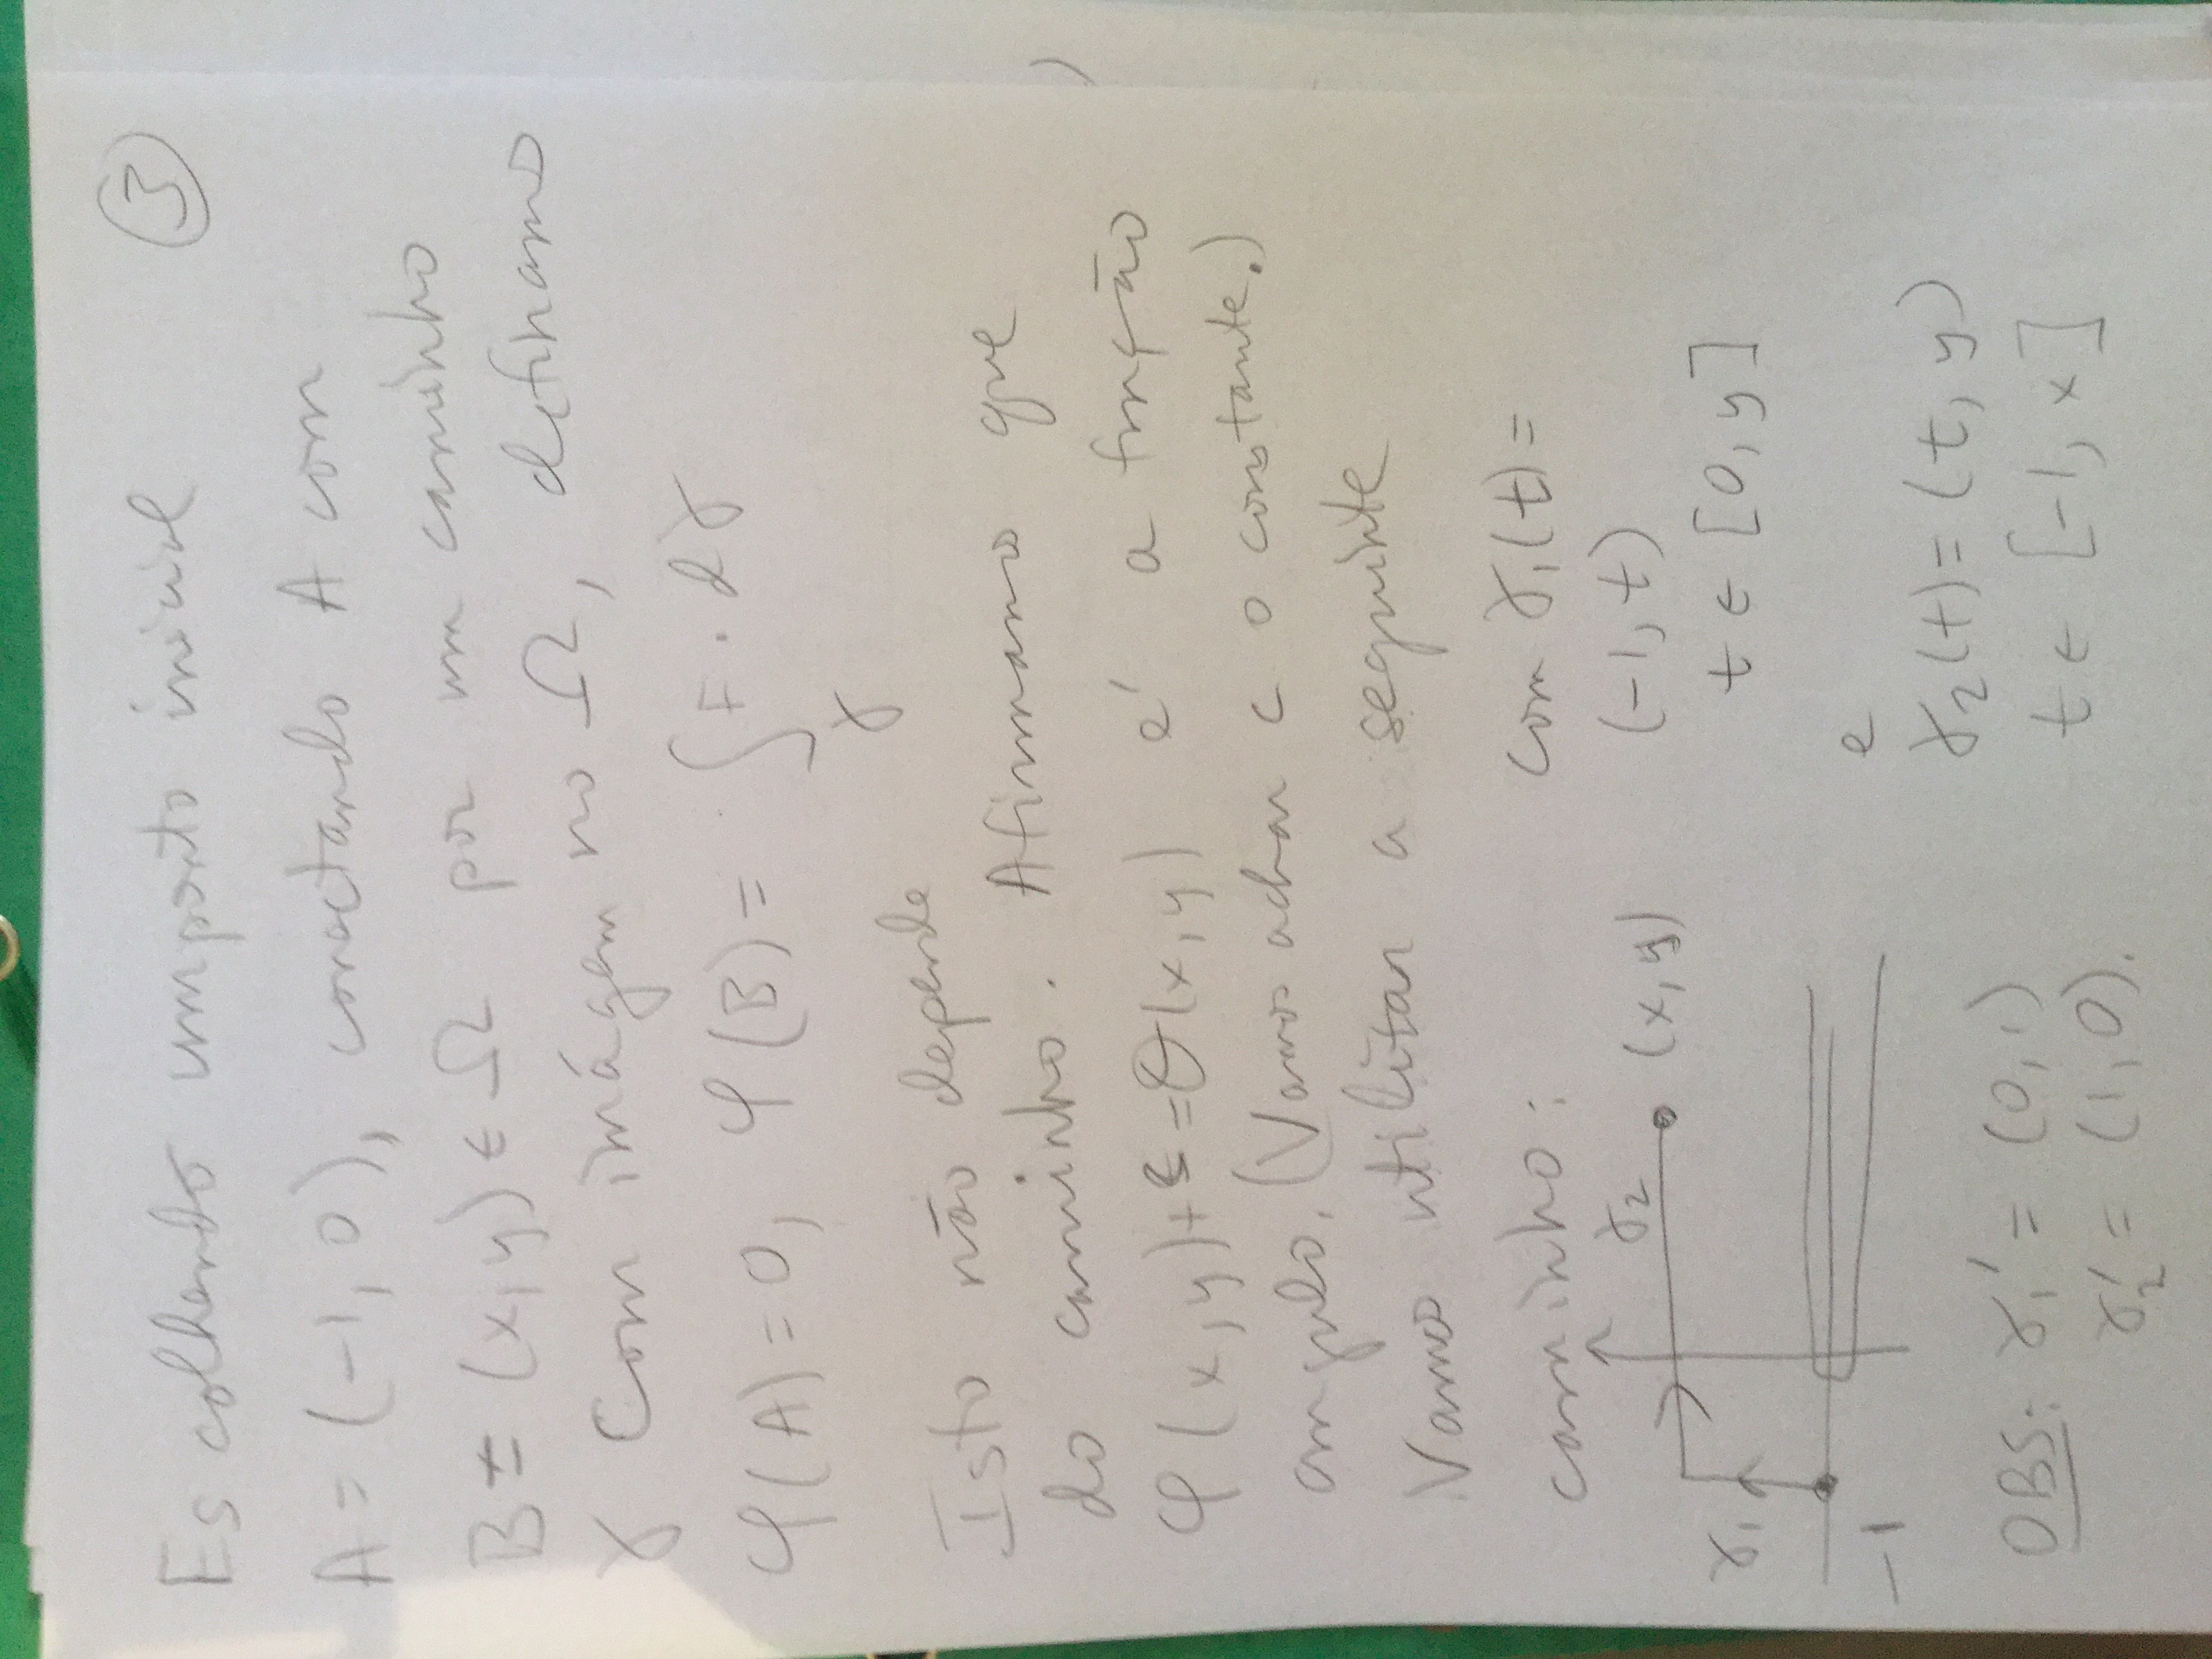 ③
Escolhendo um ponto inicial
A = (-1, 0), conectando A com
B = (x, y) ∈ Ω por um caminho
γ com imágem no Ω, definamos
φ(A) = 0, φ(B) = ∫_γ F . dγ
Isto não depende
do caminho. Afirmamos que
φ(x, y) + c = θ(x, y) e' a função
angulo. (Vamos achar c o constante.)
Vamos utilitar a seguinte
caminho: com γ₁(t) =
(-1, t)
t ∈ [0, y]
e
γ₂(t) = (t, y)
t ∈ [-1, x]
γ₁
γ₂
(x, y)
-1
OBS: γ₁' = (0, 1)
γ₂' = (1, 0).